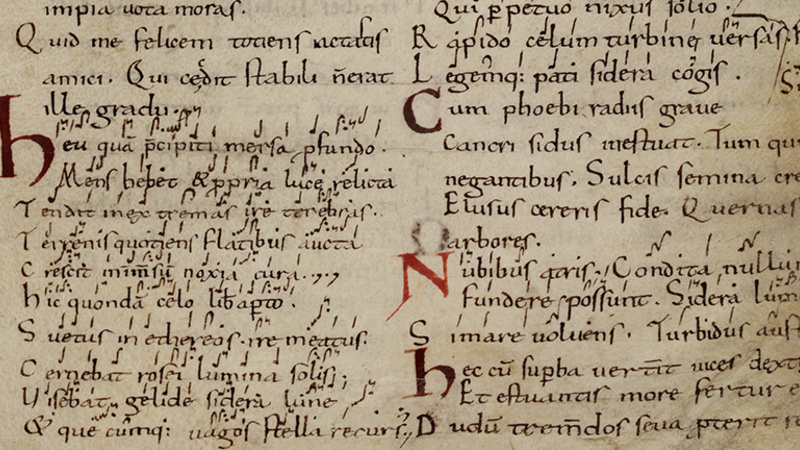 impia uota moras.
Quid me felicem totiens iactatis
amici. Qui cędit stabili n̄ erat
ille gradu.
heu quā p̄cipiti mersa pfundo.
Mens hebet & ppria luce relicta
Tendit in extremas ire terebras.
Terrenis quotiens flatibus aucta
Crescit inm̄sū noxia cura.
hic quondā cęlo
Suetus in ethereos. ire meatus.
Cernebat rosei lumina solis;
Uisebat gelide sidera lune
& que cūmq: uagos stella recurs
Qui ppetuo nixus solio.
Rapido cęlum turbine uersas
Legemq: pati sidera cogis.
Cum phoebi radiis graue
Cancri sidus inestuat. Tum qui
negantibus. Sulcis semina cre
Elusus cereris fide. Quernas
arbores.
Nubibus atris. Condita nullum
fundere possunt. Sidera lum
Si mare uoluens. Turbidus aust
hec cū supba uerterit uices dext
Et estuantis more fertur e
Dudū trem̄dos seua pterit r